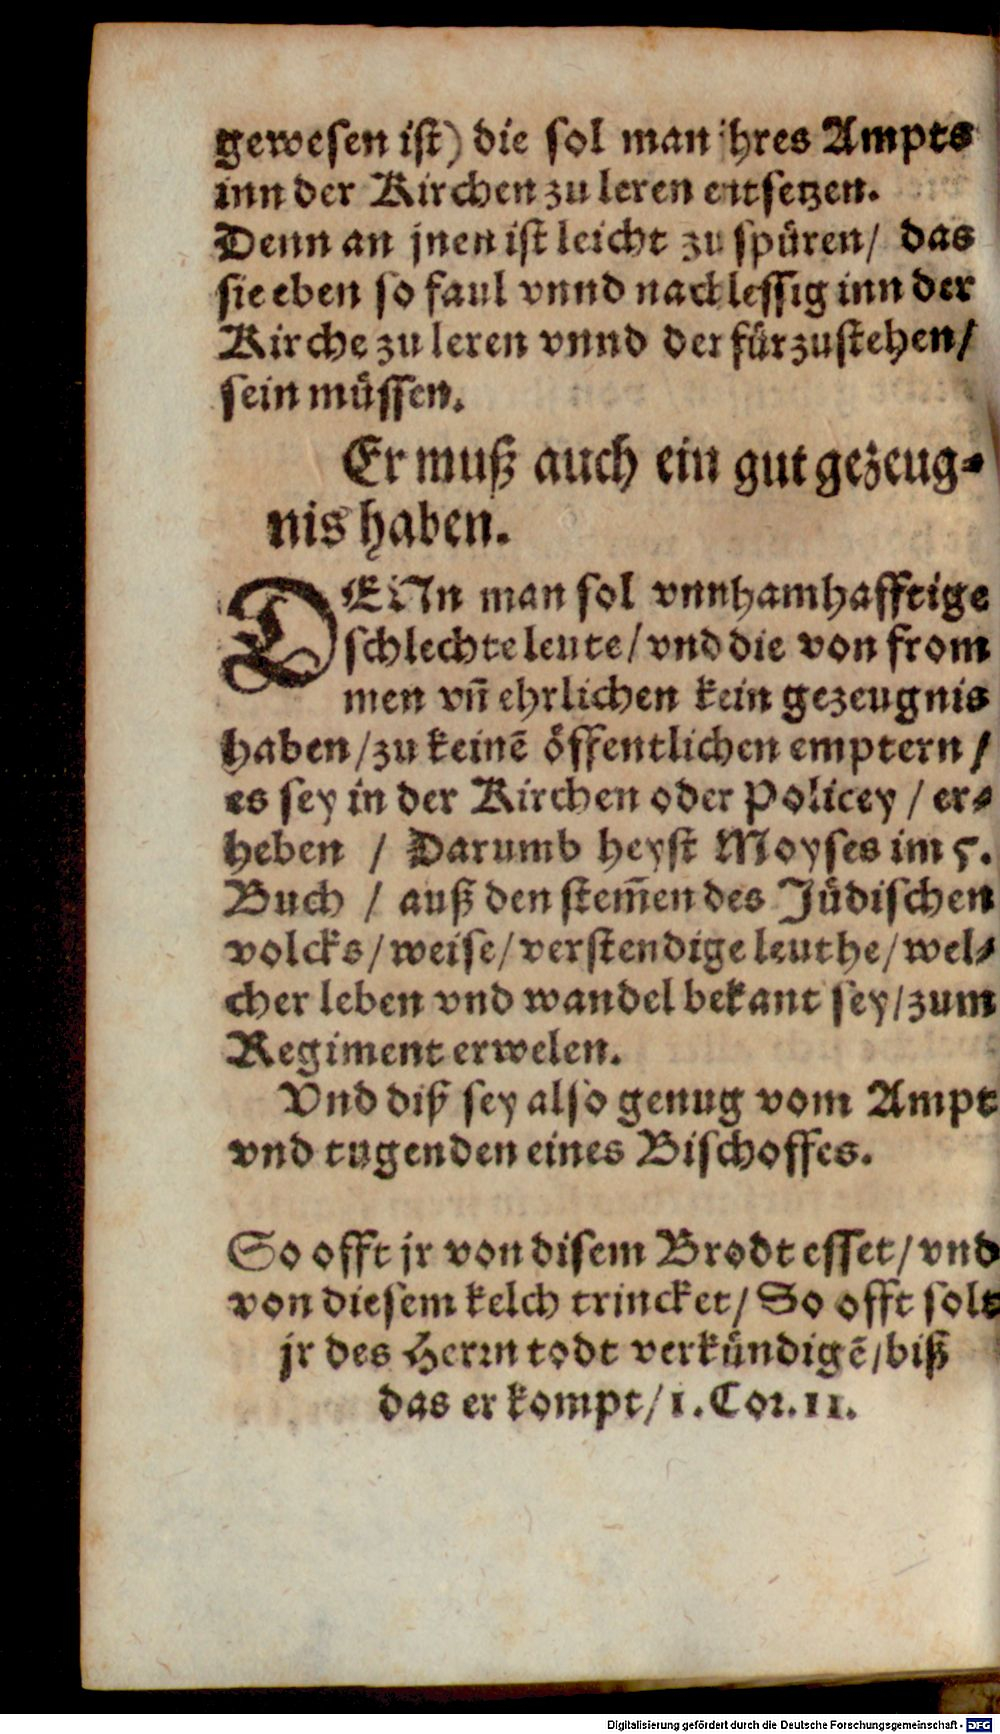 gewesen ist) die sol man ihres Ampts
inn der Kirchen zu leren entsetzen.
Denn an jnen ist leicht zu spüren/ das
sie eben so faul vnnd nachlessig inn der
Kirche zu leren vnnd der fürzustehen/
sein müssen.
Er muß auch ein gut gezeug-
nis haben.
DENn man sol vnnhamhafftige
schlechte leute/ vnd die von from
men vñ ehrlichen kein gezeugnis
haben/ zu keinē öffentlichen emptern/
es sey in der Kirchen oder Policey / er-
heben / Darumb heyst Moyses im 5.
Buch / auß den stem̄en des Jüdischen
volcks/ weise/ verstendige leuthe/ wel-
cher leben vnd wandel bekant sey/ zum
Regiment erwelen.
Vnd diß sey also genug vom Ampt
vnd tugenden eines Bischoffes.
So offt jr von disem Brodt esset/ vnd
von diesem kelch trincket/ So offt solt
jr des Herrn todt verkündigē/ biß
das er kompt/ 1. Cor. 11.
Digitalisierung gefördert durch die Deutsche Forschungsgemeinschaft - DFG